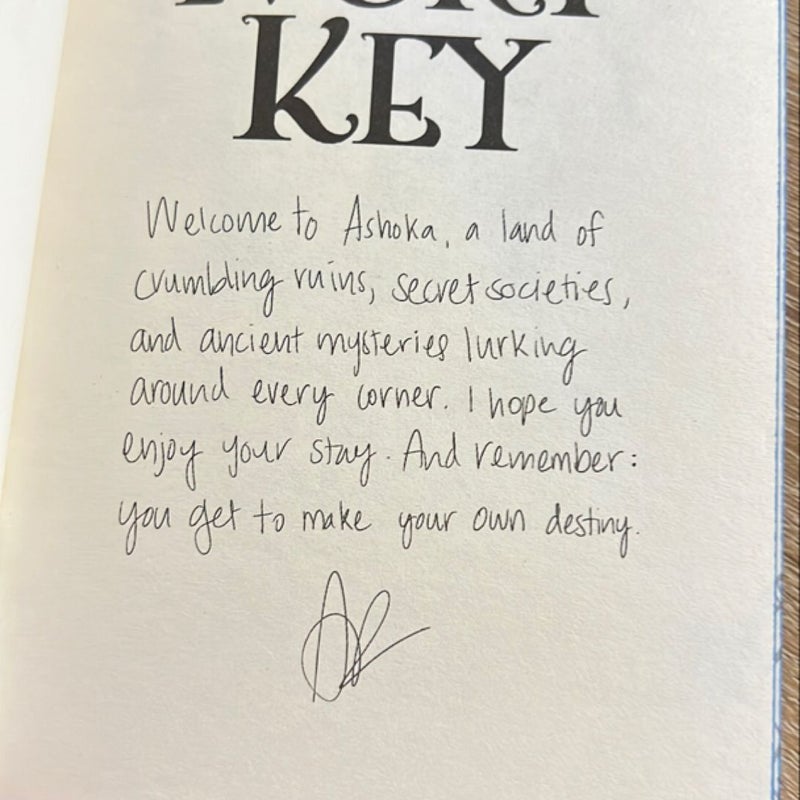 KEY
Welcome to Ashoka, a land of
crumbling ruins, secret societies,
and ancient mysteries lurking
around every corner. I hope you
enjoy your stay. And remember:
you get to make your own destiny.